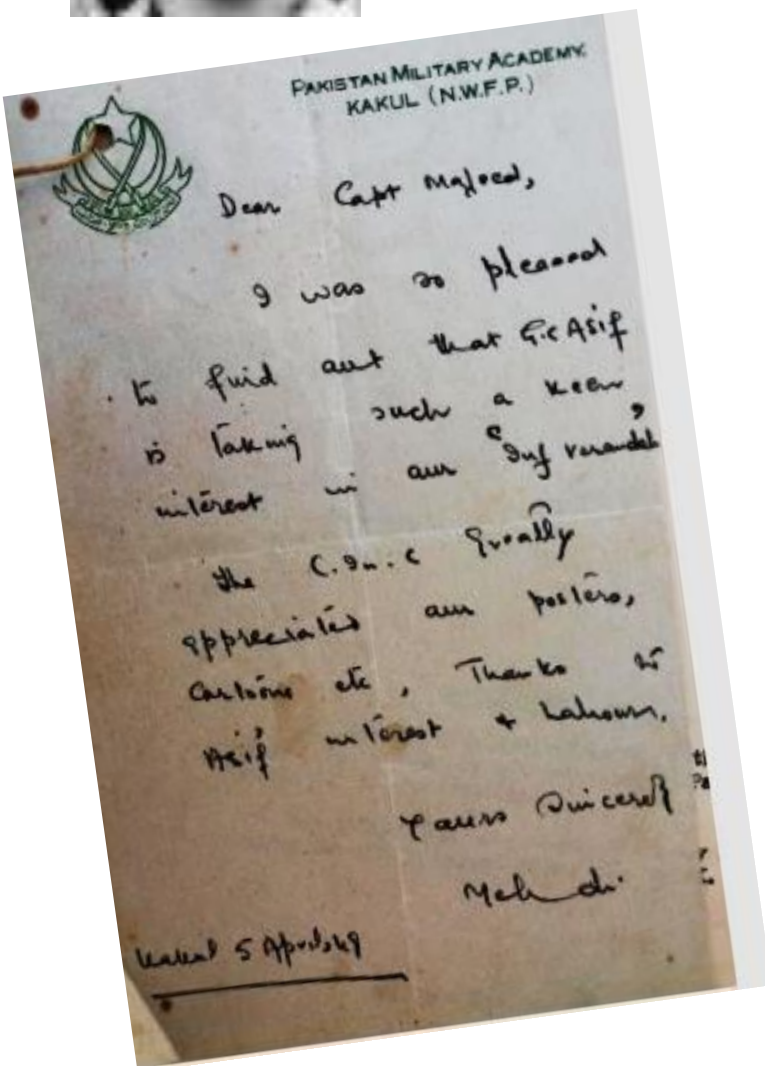 PAKISTAN MILITARY ACADEMY.
KAKUL (N.W.F.P.)
Dear Capt Majeed,
I was so pleased
to find out that G.C Asif
is taking such a keen
interest in our "Inf verandah"
The C.In.C greatly
appreciated our posters,
Cartoons etc, Thanks to
Asif interest & labour.
Yours Sincerely
Mehdi
Kakul 5 April, 49